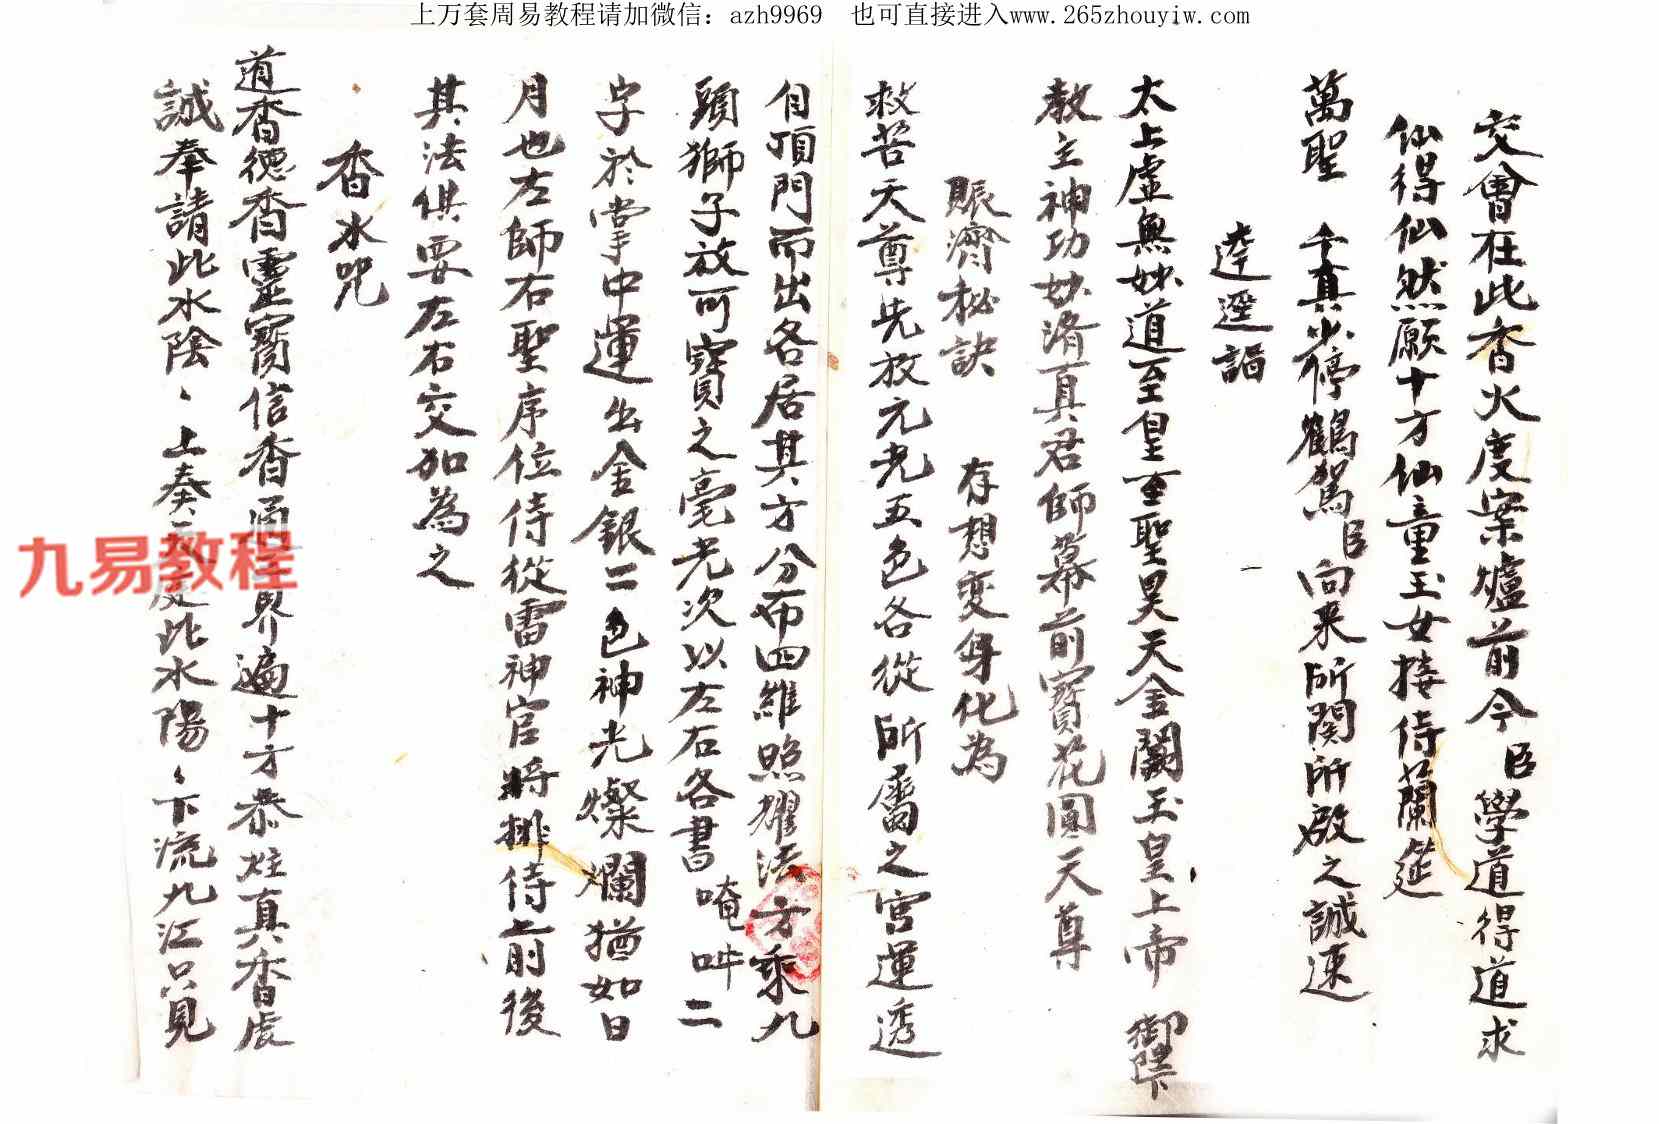 上万套周易教程请加微信：azh9969　也可直接进入www.265zhouyiw.com
交會在此香火度案爐前今臣學道得道求
仙得仙然願十方仙童玉女接侍蘭筵
萬聖　千真少停鶴駕臣向来所関所啟之誠速
逹遥詣
太上虚無妙道至皇至聖昊天金闕玉皇上帝　御陛下
教主神功妙濟真君師幕前寶花圓天尊
賑濟秘訣　存想变身化為
救苦天尊先放元光五色各從所屬之宮運透
自頂門而出各居其方分布四維照耀法方乘九
頭獅子放可寶之毫光次以左右各書唵吽二
字於掌中運出金銀二色神光燦爛猶如日
月也左師右聖序位侍從雷神官將排侍上前後
其法俱要左右交加為之
香水咒
道香德香靈寶信香通界遍十方恭炷真香虔
誠奉請此水陰〻上奏度此水陽〻下流九江只見
九易教程